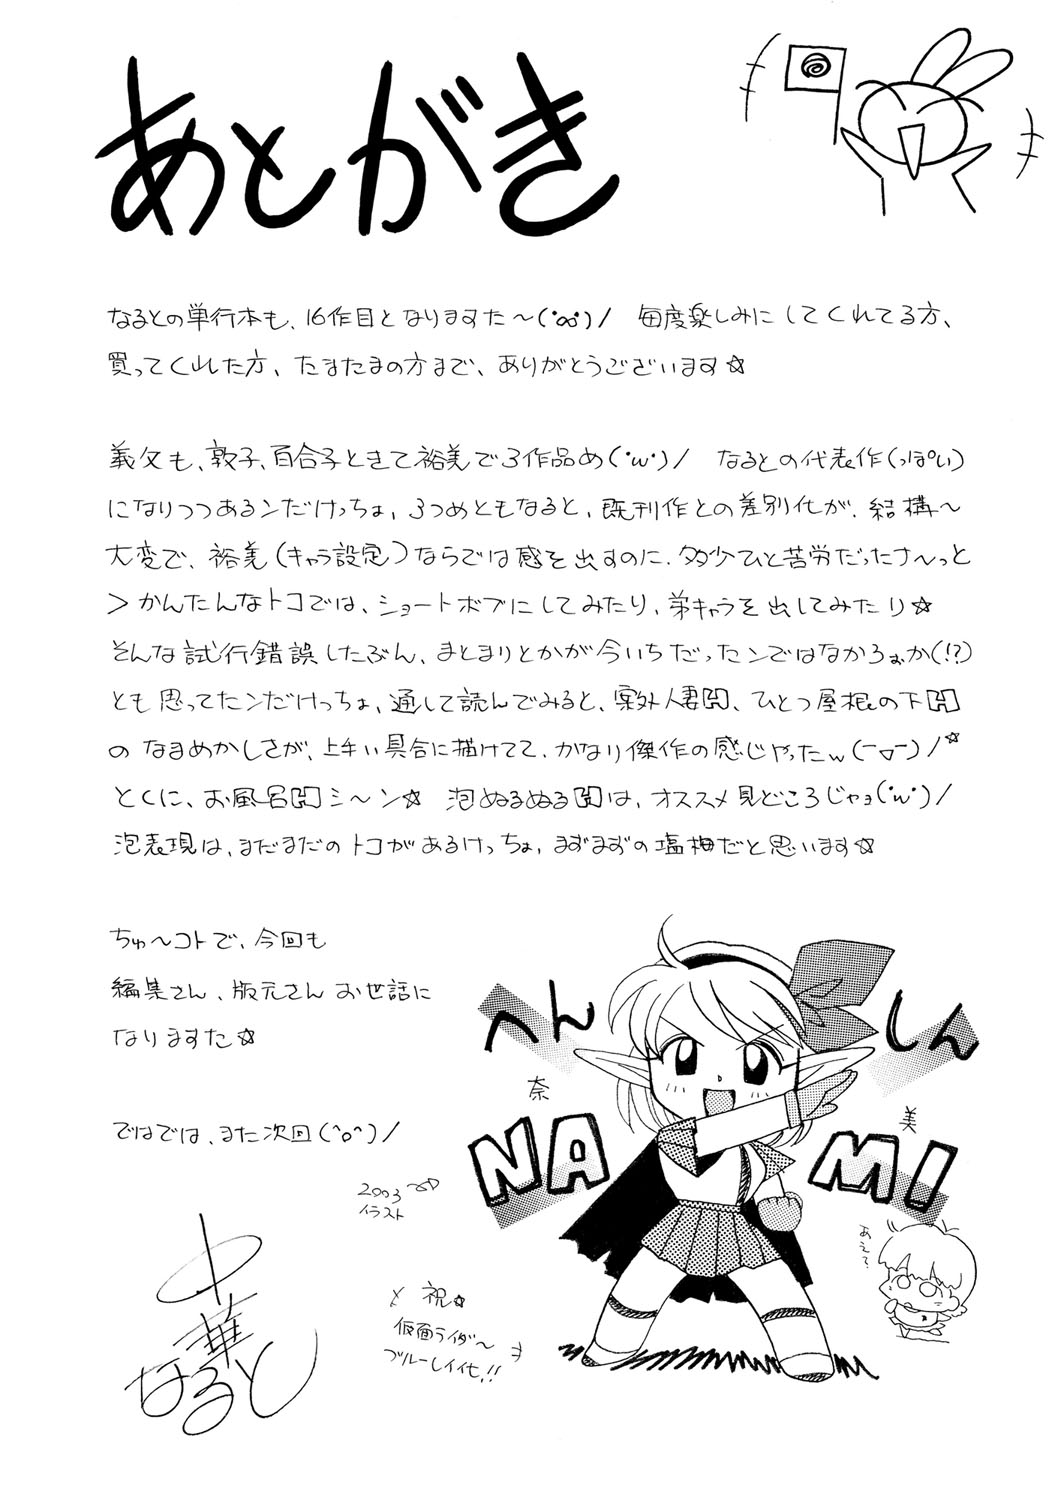 あとがき
なるとの単行本も、16作目となりますた～(･∞･)/　毎度楽しみにしてくれてる方、
買ってくれた方、たまたまの方まで、ありがとうございます☆
義父も、敦子、百合子ときて裕美で3作品め(･ω･)/　なるとの代表作(っぽい)
になりつつあるンだけっちょ、3つめともなると、既刊作との差別化が、結構～
大変で、裕美(キャラ設定)ならでは感を出すのに、多少ひと苦労だったナ～っと
＞かんたんなトコでは、ショートボブにしてみたり、弟キャラを出してみたり☆
そんな試行錯誤したぶん、まとまりとかが今いちだったンではなかろぉか(!?)
とも思ってたンだけっちょ、通して読んでみると、案外人妻H、ひとつ屋根の下H
のなまめかしさが、上手い具合に描けてて、かなり傑作の感じやったw(￣▽￣)/☆
とくに、お風呂Hシ～ン☆　泡ぬるぬるHは、オススメ見どころじゃョ(･ω･)/
泡表現は、まだまだのトコがあるけっちょ、まずまずの塩梅だと思います☆
ちゅ～コトで、今回も
編集さん、版元さんお世話に
なりますた☆
ではでは、また次回(^o^)/
2003
イラスト
中華なると
祝☆
仮面ライダ～
ブルーレイ化!!
へんしん
奈美
NAMI
あえて？